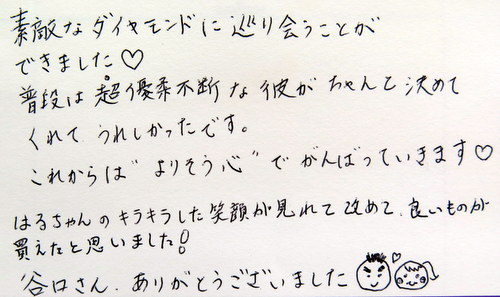 素敵なダイヤモンドに巡り会うことが
できました♡
普段は超優柔不断な彼がちゃんと決めて
くれてうれしかったです。
これからは"よりそう心"でがんばっていきます♡
はるちゃんのキラキラした笑顔が見れて改めて、良いものが
買えたと思いました!
谷口さん、ありがとうございました